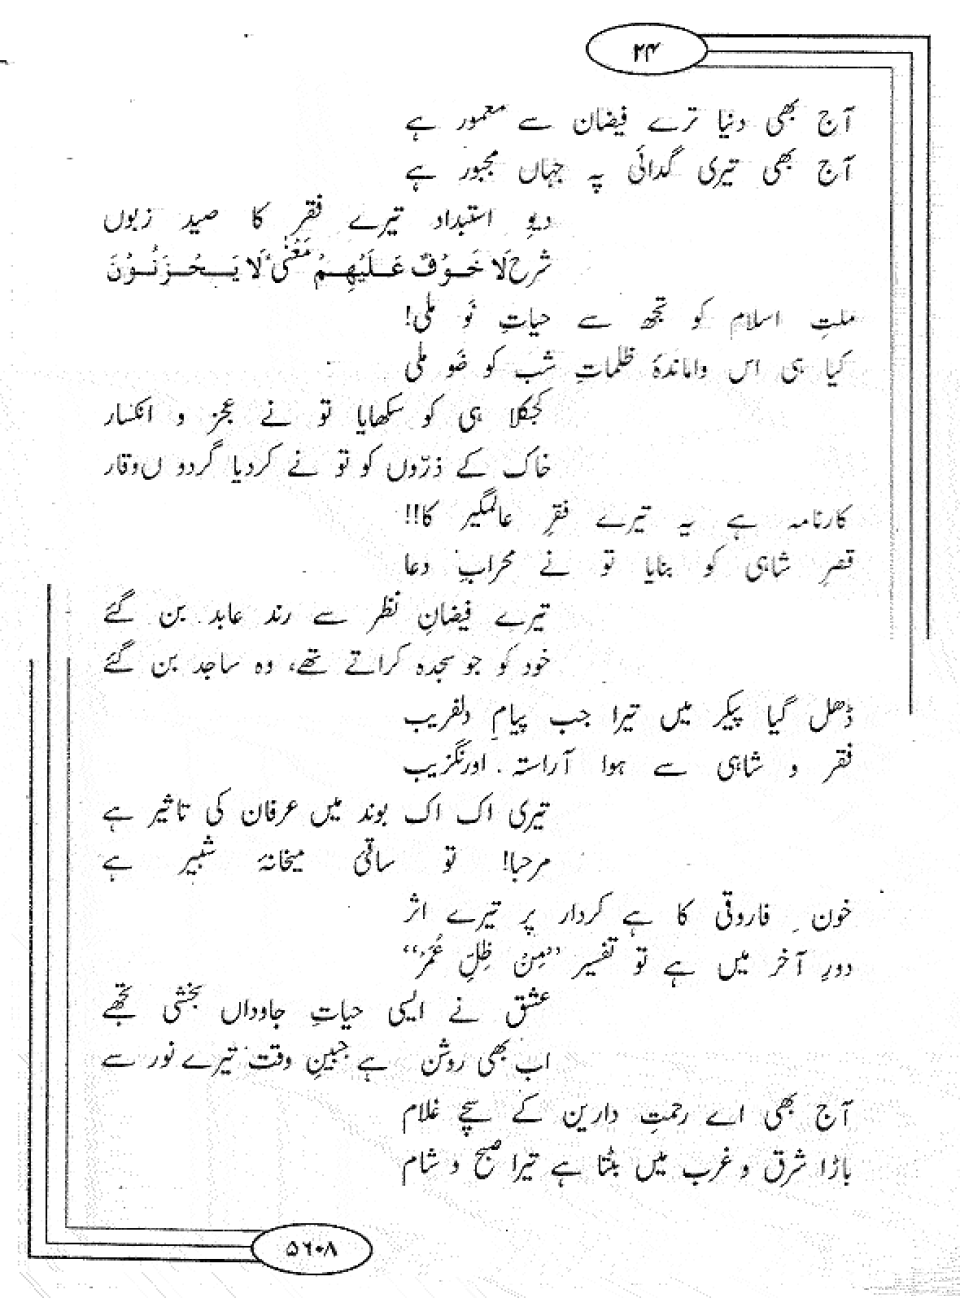 ۲۴
آج بھی دنیا ترے فیضان سے معمور ہے
آج بھی تیری گدائی پہ جہاں مجبور ہے
دیوِ استبداد تیرے فقر کا صید زبوں
شرح لَا خَوْفٌ عَلَيْهِمْ مَعْنٰئ لَا يَحْزَنُوْنَ
ملتِ اسلام کو تجھ سے حیاتِ نَو ملی!
کیا ہی اس واماندۂ ظلماتِ شب کو ضَو ملی
کجکلا ہی کو سکھایا تو نے عجز و انکسار
خاک کے ذرّوں کو تو نے کردیا گردو ں وقار
کارنامہ ہے یہ تیرے فقرِ عالمگیر کا!!
قصر شاہی کو بنایا تو نے محرابِ دعا
تیرے فیضانِ نظر سے رند عابد بن گئے
خود کو جو سجدہ کراتے تھے، وہ ساجد بن گئے
ڈھل گیا پیکر میں تیرا جب پیامِ دلفریب
فقر و شاہی سے ہوا آراستہ اورنگزیب
تیری اک اک بوند میں عرفان کی تاثیر ہے
مرحبا! تو ساقئ میخانۂ شبیر ہے
خونِ فاروقی کا ہے کردار پر تیرے اثر
دورِ آخر میں ہے تو تفسیر ”مِنْ ظِلِّ عُمَرْ“
عشق نے ایسی حیاتِ جاوداں بخشی تجھے
اب بھی روشن ہے جبینِ وقت تیرے نور سے
آج بھی اے رحمتِ دارین کے سچے غلام
باڑا شرق و غرب میں بٹتا ہے تیرا صبح و شام
۵۶۰۸